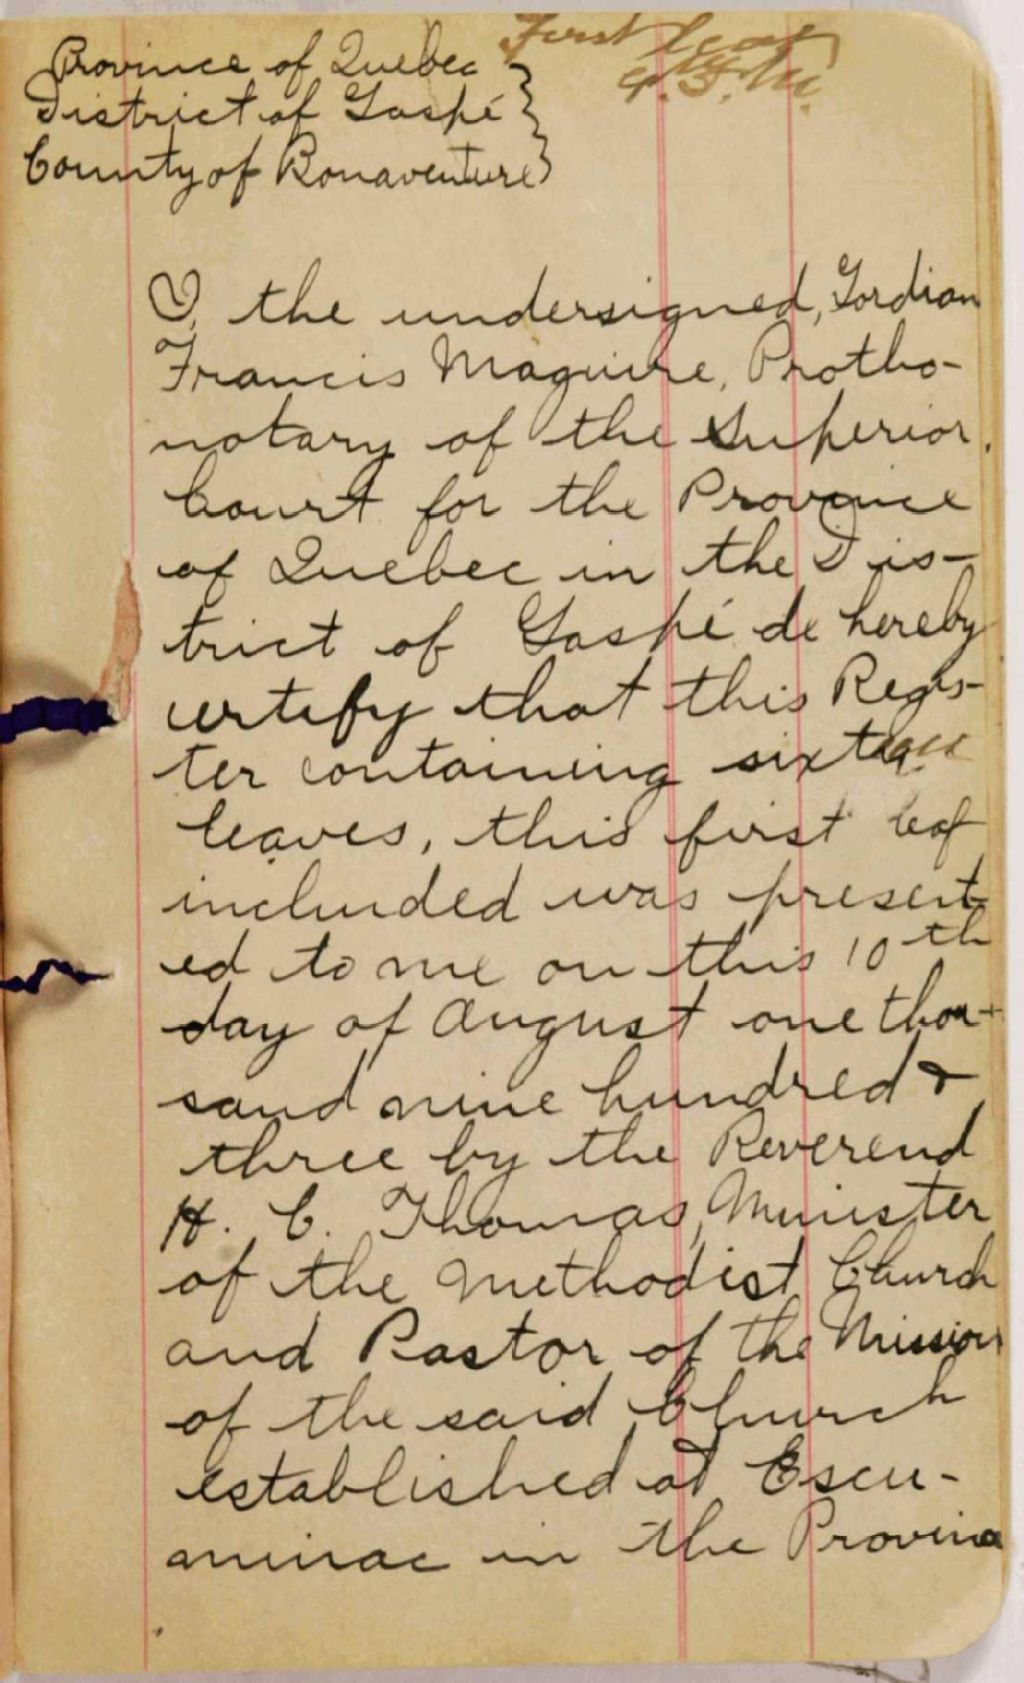 First leaf
G. F. M.
Province of Quebec
District of Gaspé
County of Bonaventure
I, the undersigned, Gordian
Francis Maguire, Protho-
notary of the Superior
Court for the Province
of Quebec in the Dis-
trict of Gaspé do hereby
certify that this Regis-
ter containing sixteen
leaves, this first leaf
included was present-
ed to me on this 10th
day of August one thou-
sand nine hundred &
three by the Reverend
H. C. Thomas, Minister
of the Methodist Church
and Pastor of the Mission
of the said Church
established at Escu-
minac in the Province